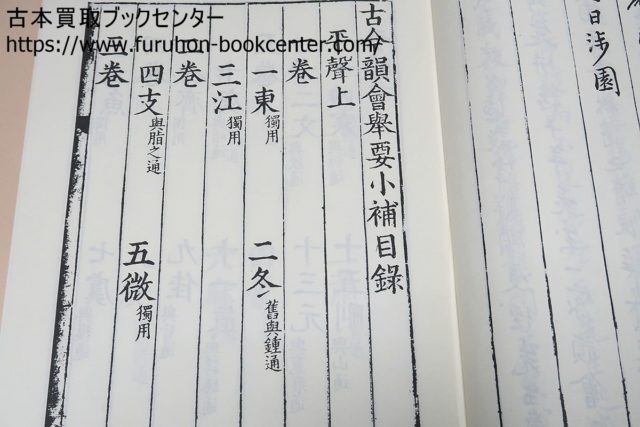 古本買取ブックセンター
https://www.furuhon-bookcenter.com/
日涉園
古今韻會舉要小補目錄
平聲上
卷
一東獨用 二冬舊與鍾通
三江獨用
卷
四支與脂之通 五微獨用
三卷